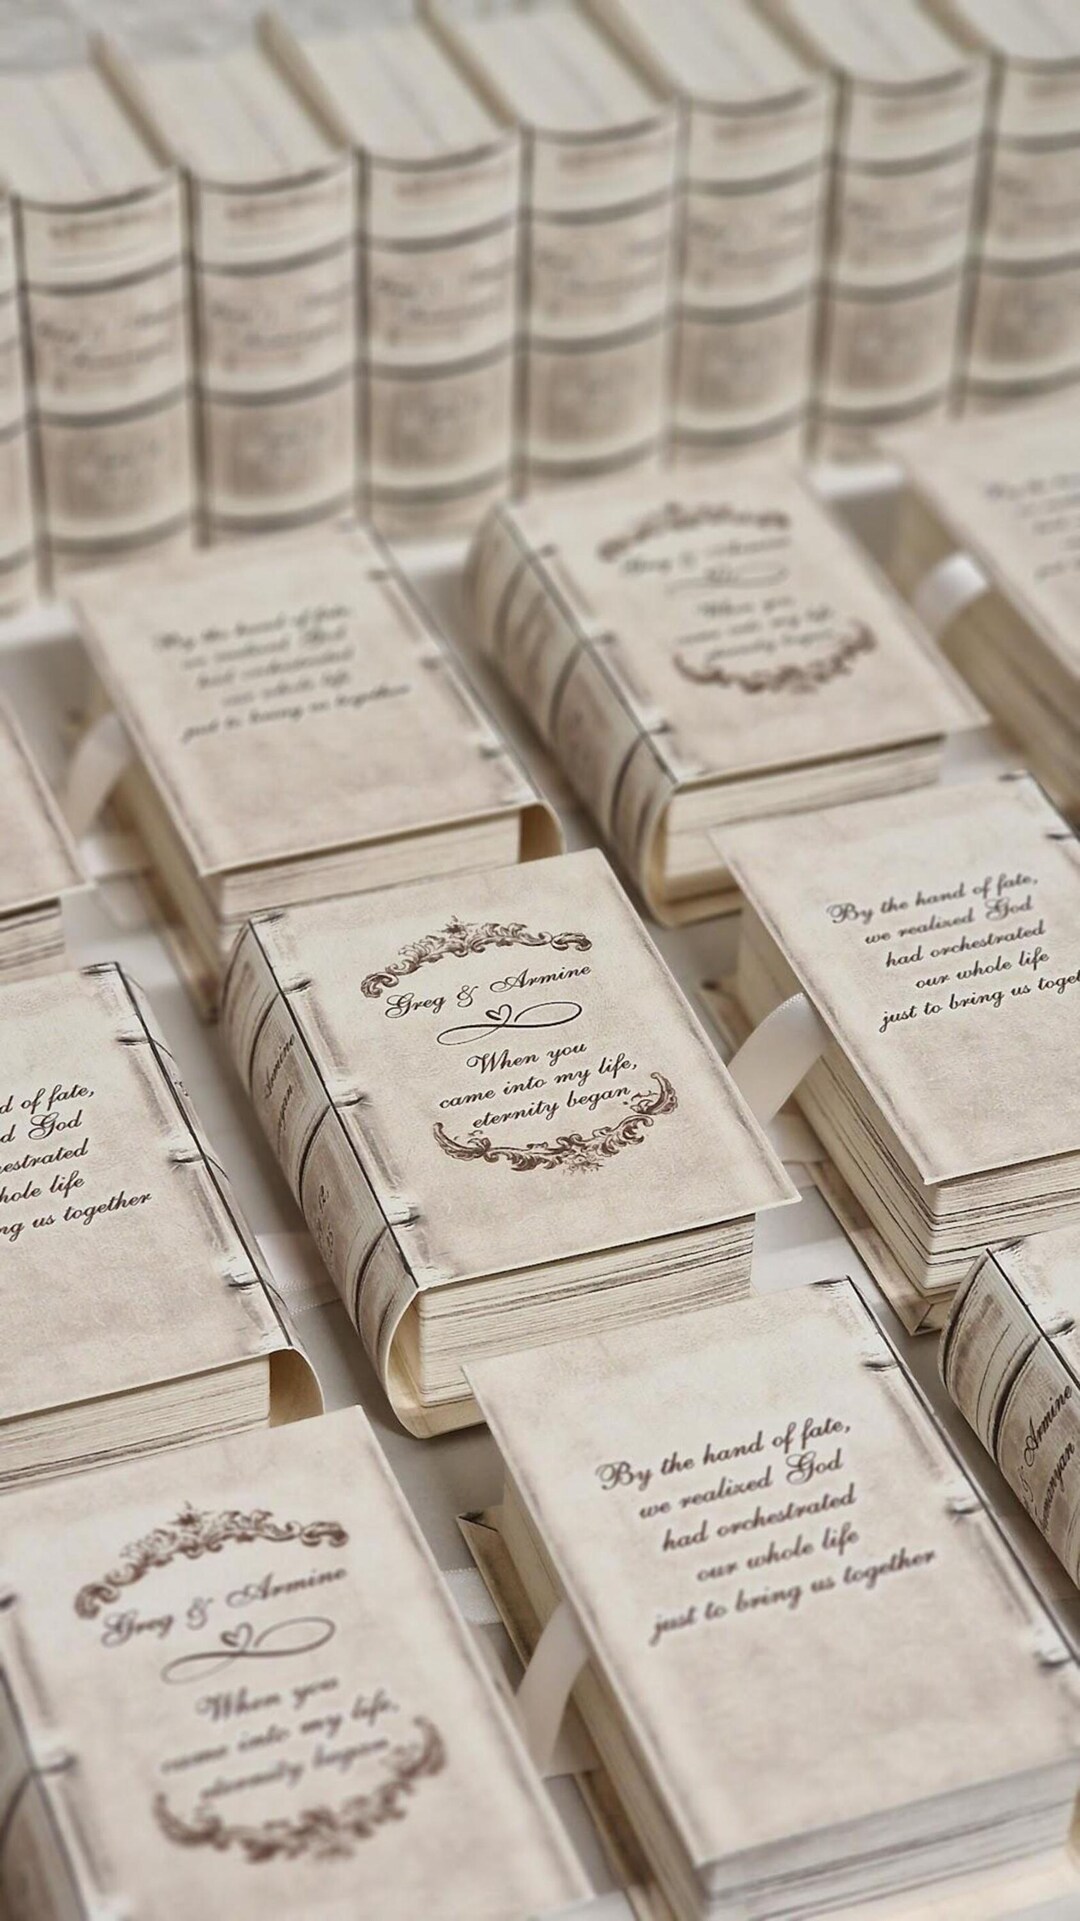 By the hand of fate,
we realized God
had orchestrated
our whole life
just to bring us together
Greg & Armine
When you
came into my life,
By the hand of fate,
we realized God
had orchestrated
our whole life
just to bring us toget
Greg & Armine
When you
came into my life,
eternity began
Armine
d of fate,
d God
hestrated
hole life
ng us together
By the hand of fate,
we realized God
had orchestrated
our whole life
just to bring us together
& Armine
Greg & Armine
When you
came into my life,
eternity began